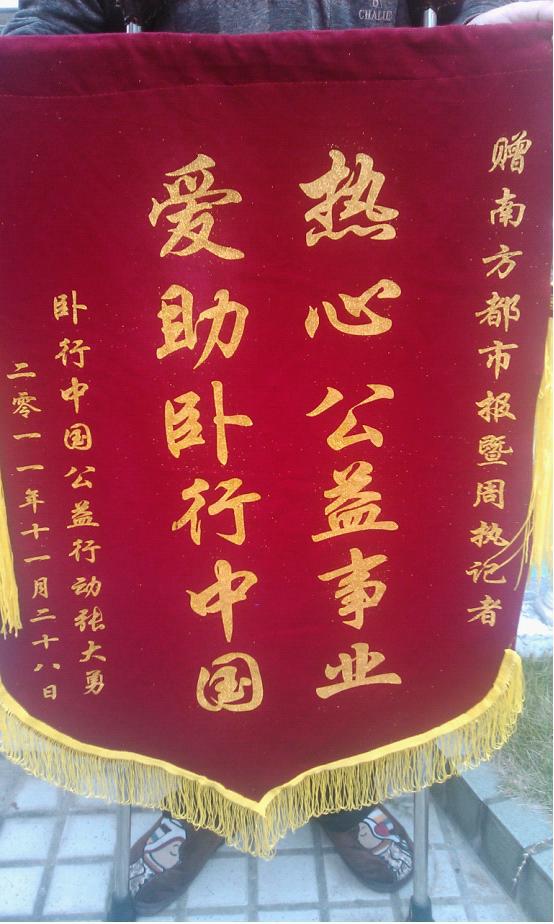 赠南方都市报暨周执记者
热心公益事业
爱助卧行中国
卧行中国公益行动张大勇
二零一一年十一月二十八日
CHALIE